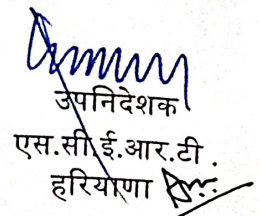 उपनिदेशक
एस.सी.ई.आर.टी.
हरियाणा